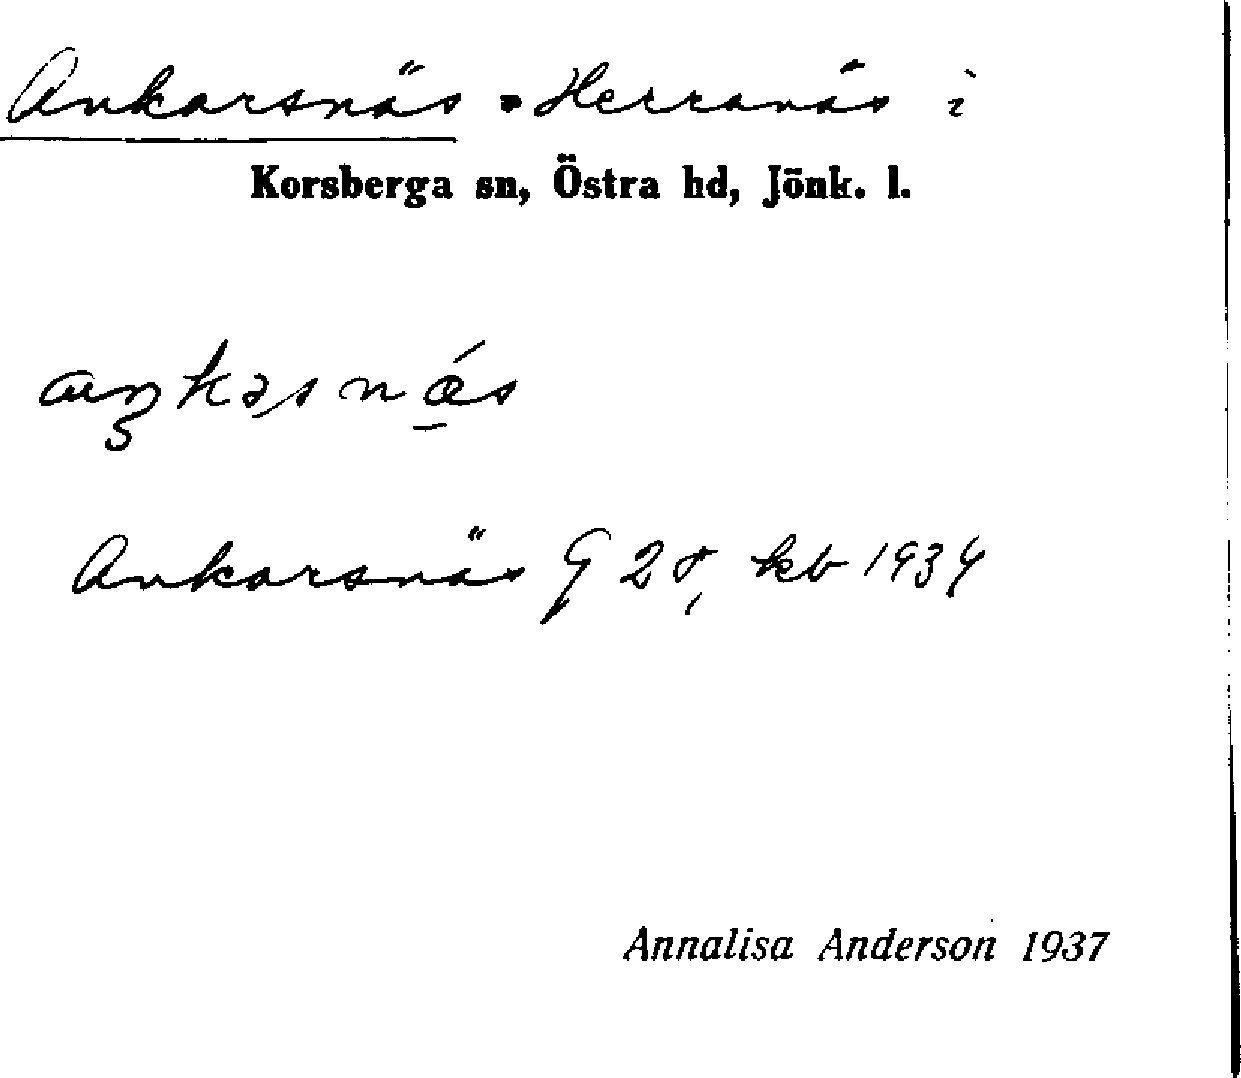 Ankarsnäs = Herranäs i
Korsberga sn, Östra hd, Jönk. l.
Ankarsnäs G 28, kb 1934
Annalisa Anderson 1937